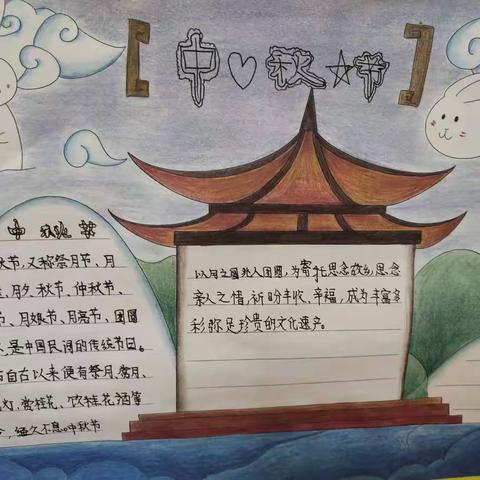 中秋节
中秋节
秋节,又称祭月节、月
、月夕、秋节、仲秋节、
节、月娘节、月亮节、团圆
,是中国民间的传统节日。
自古以来便有祭月、赏月、
灯、赏桂花、饮桂花酒等
,经久不息。中秋节
以月之圆兆人团圆,为寄托思念故乡,思念
亲人之情,祈盼丰收、幸福,成为丰富多
彩、弥足珍贵的文化遗产。